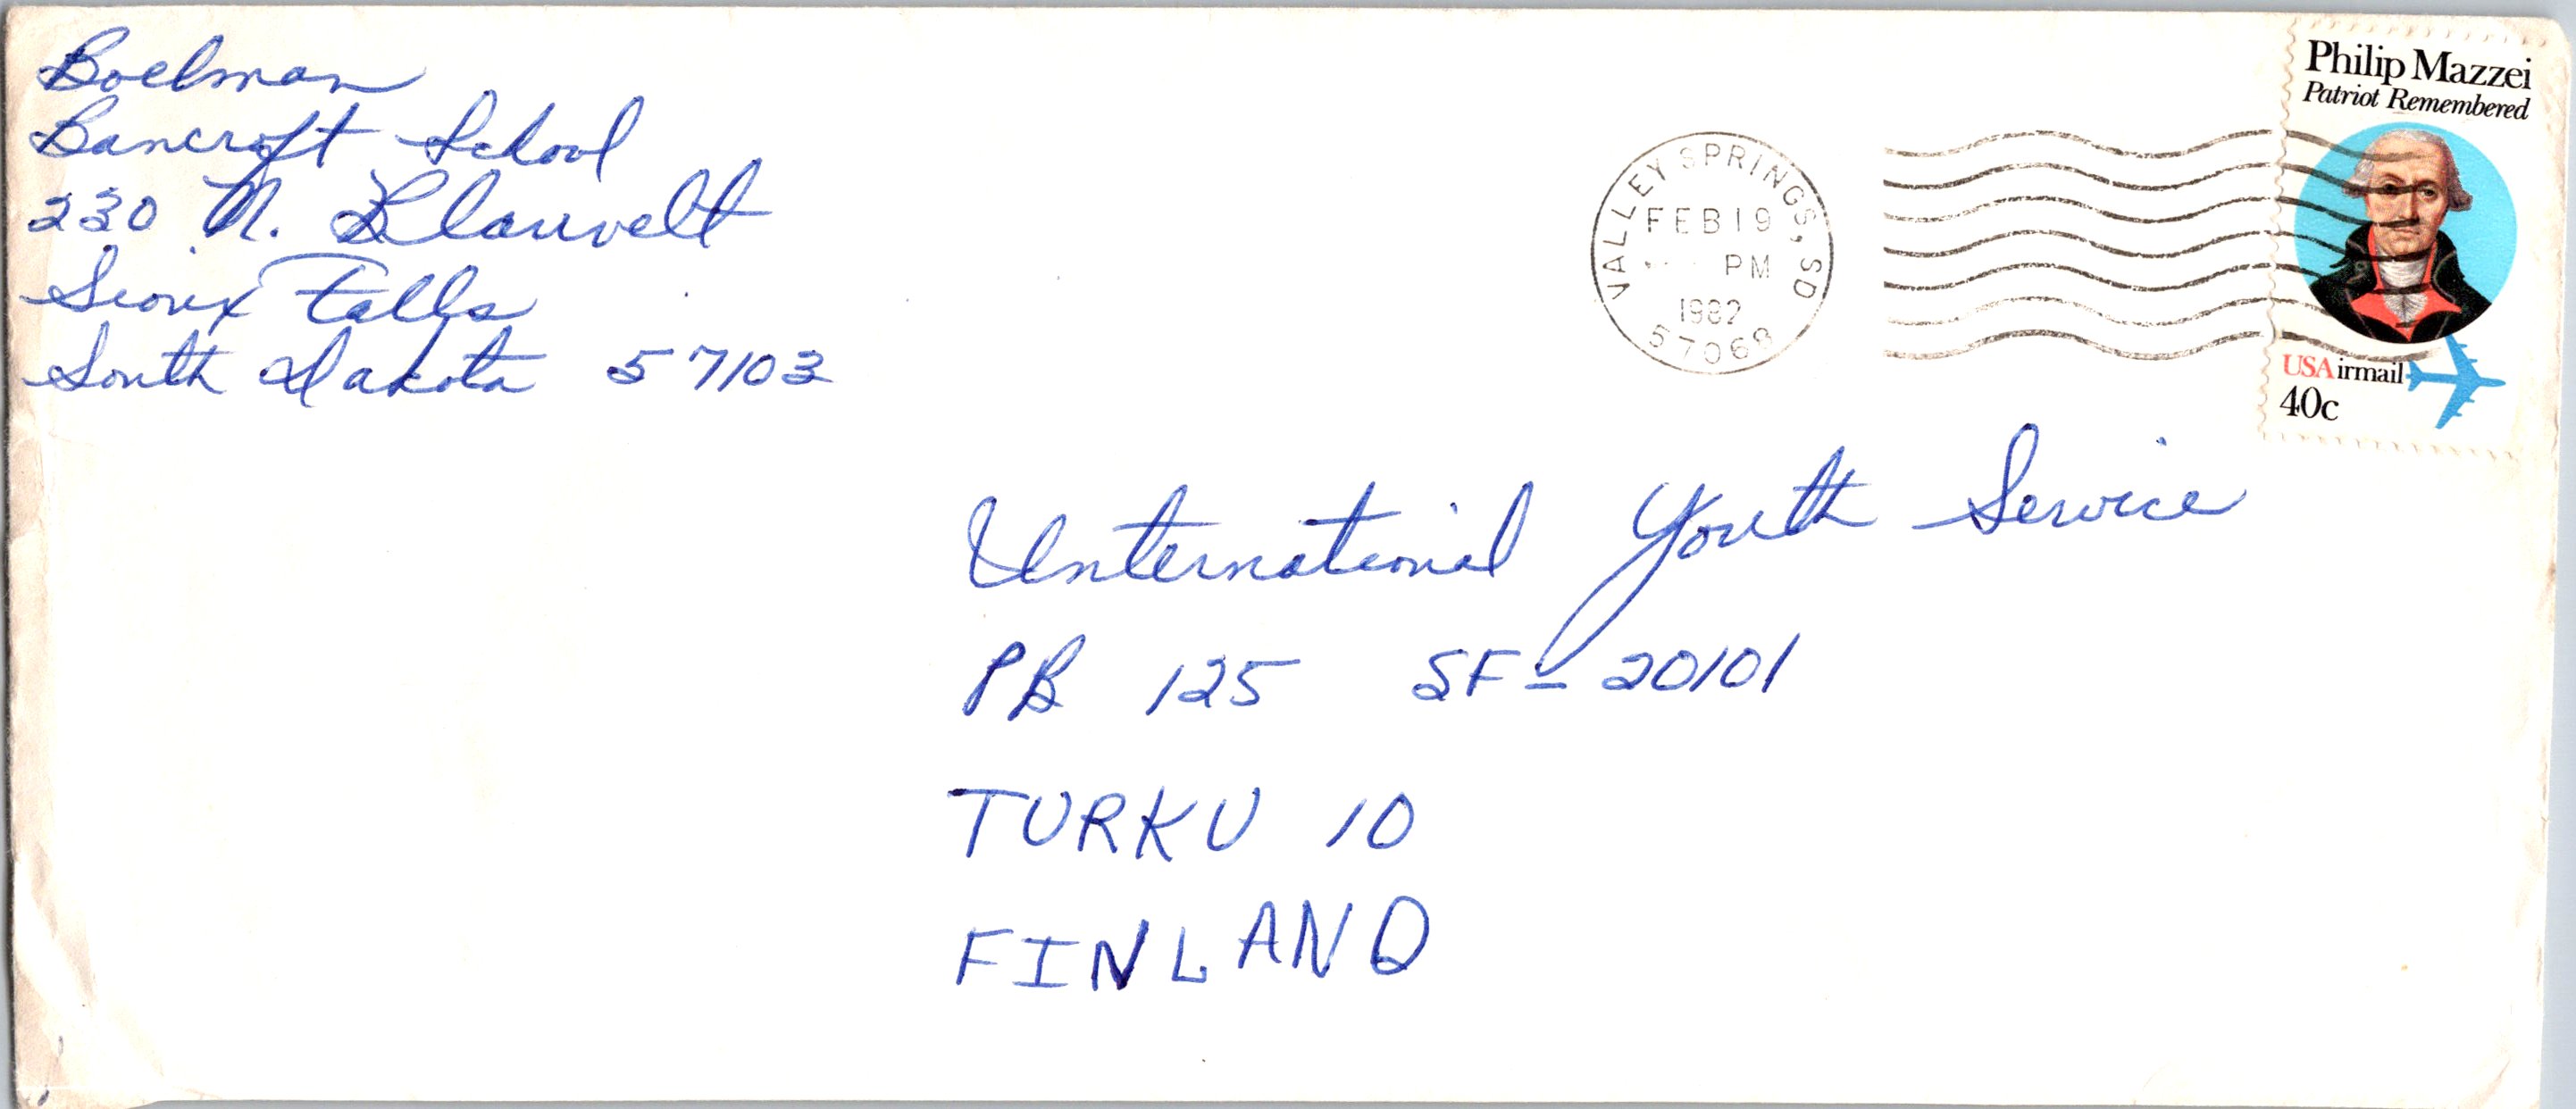 Boelman
Bancroft School
230 N. Blauvelt
Sioux Falls
South Dakota 57103
VALLEY SPRINGS, SD
FEB 19
PM
1982
57068
Philip Mazzei
Patriot Remembered
USAirmail
40c
International Youth Service
PB 125 SF - 20101
TURKU 10
FINLAND